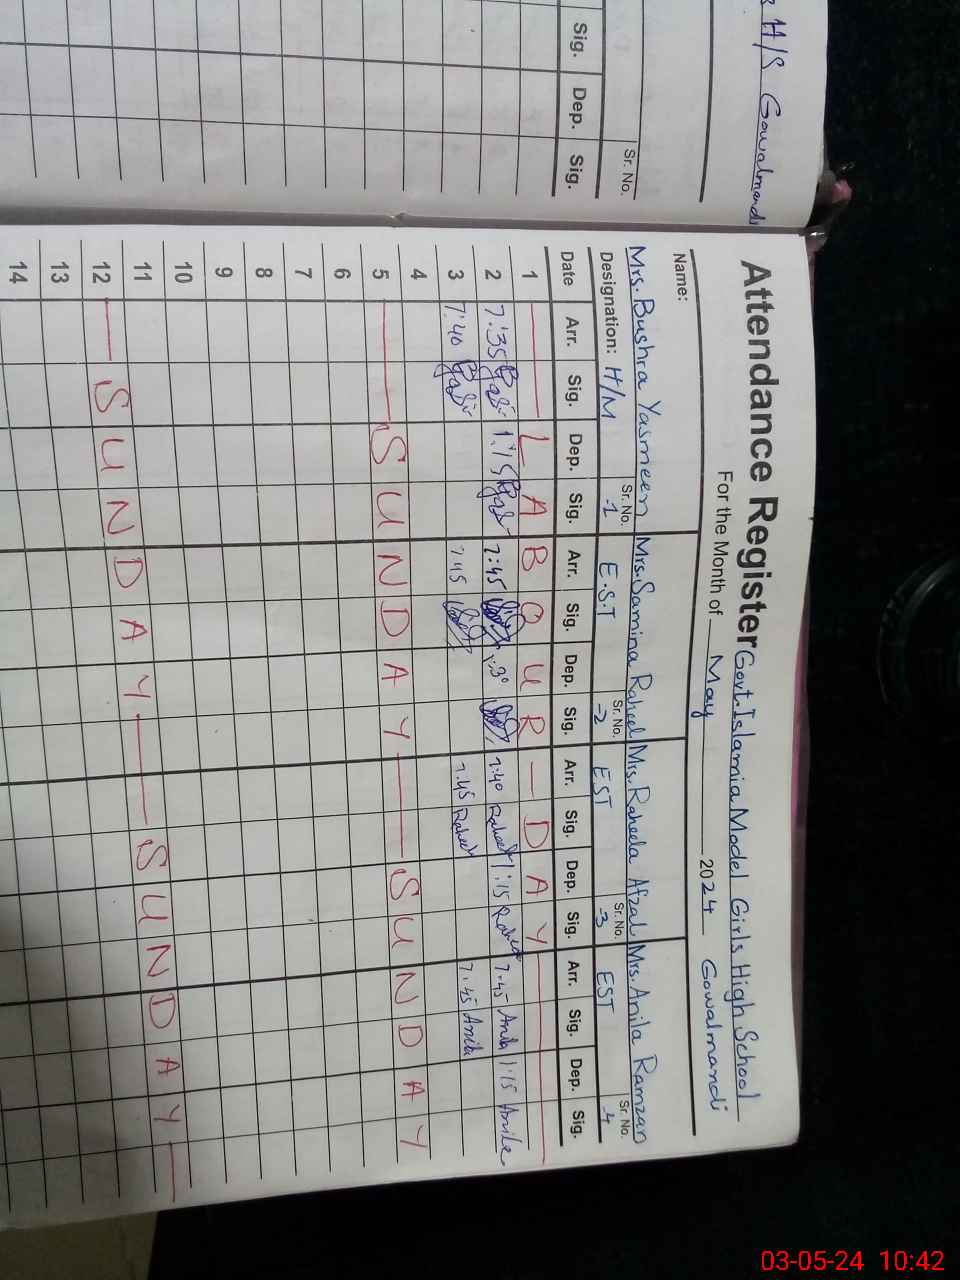 H/S Gowalmandi
Sr. No.
Sig. Dep. Sig.
Attendance Register Govt. Islamia Model Girls High School
For the Month of May 2024 Gowalmandi
Name:
Mrs. Bushra Yasmeen Mrs. Samina Raheel Mrs. Raheela Afzal Mrs. Anila Ramzan
Designation: H/M Sr. No. -1 E.S.T Sr. No. -2 EST Sr. No. -3 EST Sr. No. -4
Date Arr. Sig. Dep. Sig. Arr. Sig. Dep. Sig. Arr. Sig. Dep. Sig. Arr. Sig. Dep. Sig.
1 LABOUR - DAY
2 7:35 1:15 7:45 7:40 Raheela 1:15 Raheela 7:45 Anila 1:15 Anila
3 7:40 7:45 7:45 Raheela 7:45 Anila
4
5 SUNDAY SUNDAY
6
7
8
9
10
11
12 SUNDAY SUNDAY
13
14
03-05-24 10:42